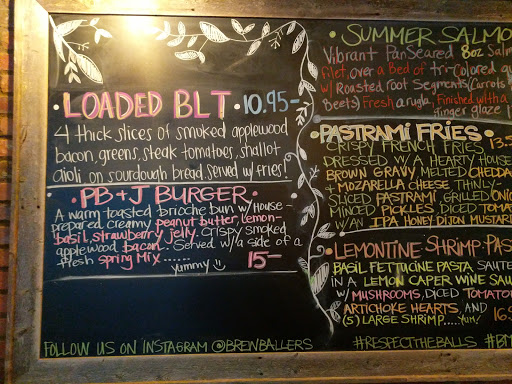 LOADED BLT • 10.95-
4 thick slices of smoked applewood
bacon, greens, steak tomatoes, shallot
aioli on sourdough bread. served w/ fries!
• PB+J BURGER •
A warm toasted brioche bun w/ house-
prepared creamy peanut butter, lemon-
basil, strawberry jelly. Crispy smoked
applewood bacon. Served w/ a side of a
fresh spring mix......
yummy 15-
FOLLOW US ON INSTAGRAM @BREWBALLERS
• SUMMER SALMO
Vibrant Pan Seared 8oz Salm
filet, over a Bed of tri-Colored
w/ Roasted root Segments (Carrots
beets) Fresh arugla, Finished with a
ginger glaze
• PASTRAMI FRIES •
CRISPY FRENCH FRIES 13.5
DRESSED W/ A HEARTY HOUSE
BROWN GRAVY MELTED CHEDDA
& MOZARELLA CHEESE THINLY-
SLICED PASTRAMI, GRILLED ONIO
MINCED PICKLES DICED TOMATO
W/ AN IPA HONEY DIJON MUSTAR
• LEMONTINE SHRIMP PAS
BASIL FETTUCINE PASTA SAUTE
IN A LEMON CAPER WINE SAU
W/ MUSHROOMS, DICED TOMATO
ARTICHOKE HEARTS, AND
(5) LARGE SHRIMP.....YUM! 16.
#RESPECTTHEBALLS